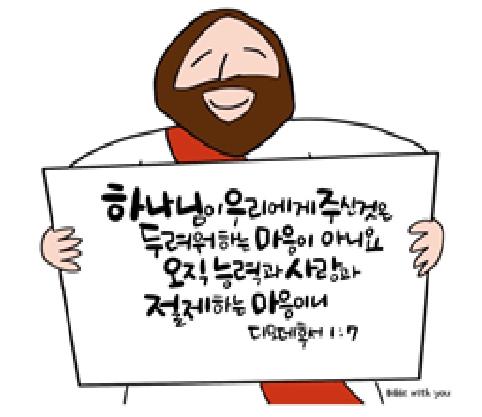 하나님이 우리에게 주신것은
두려워하는 마음이 아니요
오직 능력과 사랑과
절제하는 마음이니
디모데후서 1:7
Bible with you